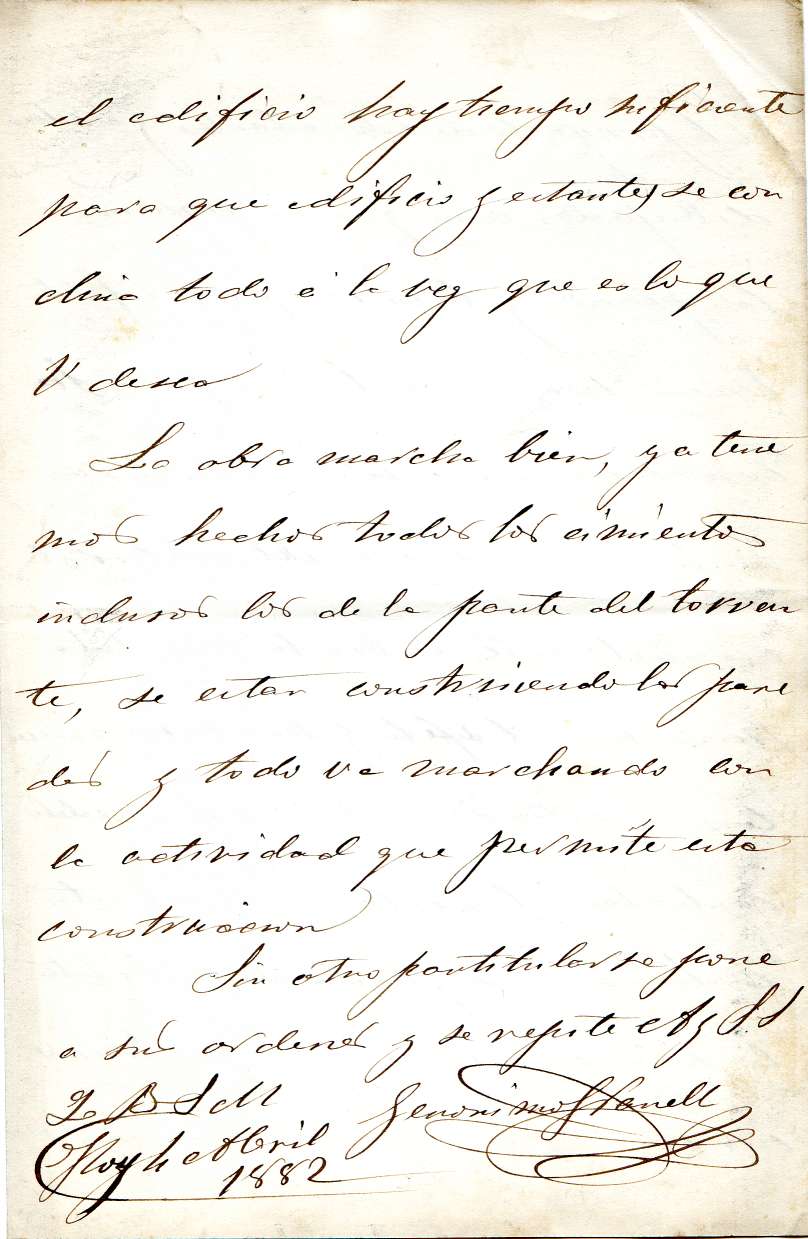 el edificio hay tiempo suficiente
para que edificio y estantes se con
cluia todo á la vez que es lo que
V desea
La obra marcha bien, ya tene
mos hechos todos los cimientos
inclusos los de la parte del torren
te, se estan construiendo las pare
des y todo va marchando con
la actividad que permite esta
construccion
Sin otro partitular se pone
a sus ordenes y se repite A y S.S
Q B S M Geronimo Granell
Hoy 4 Abril
1882